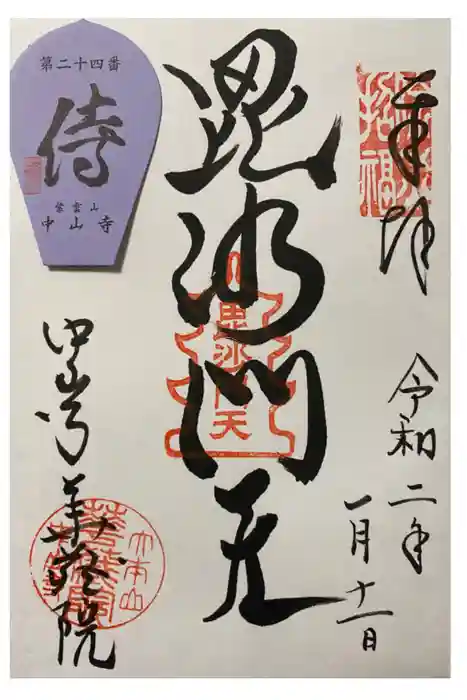 奉拝
招福
令和二年
一月十一日
毘沙門天
毘沙門天
第二十四番
紫雲山
中山寺
中山寺華蔵院
大本山